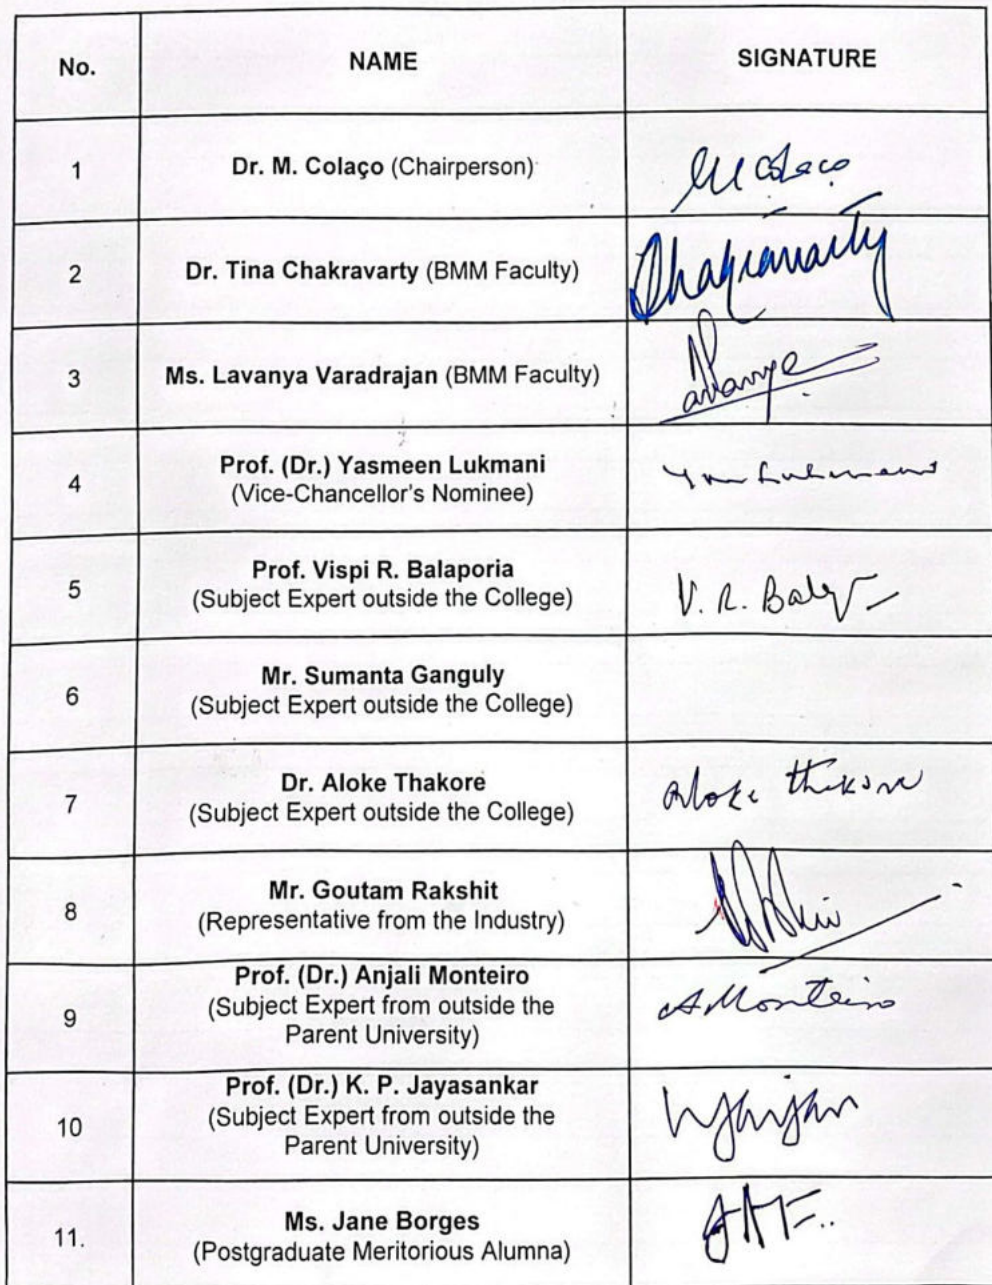 No. NAME SIGNATURE
1 Dr. M. Colaço (Chairperson) M Colaco
2 Dr. Tina Chakravarty (BMM Faculty) Chakravarty
3 Ms. Lavanya Varadrajan (BMM Faculty)
4 Prof. (Dr.) Yasmeen Lukmani
(Vice-Chancellor's Nominee)
5 Prof. Vispi R. Balaporia
(Subject Expert outside the College) V. R. Balap
6 Mr. Sumanta Ganguly
(Subject Expert outside the College)
7 Dr. Aloke Thakore
(Subject Expert outside the College) Aloke Thakore
8 Mr. Goutam Rakshit
(Representative from the Industry)
9 Prof. (Dr.) Anjali Monteiro
(Subject Expert from outside the A Monteiro
Parent University)
10 Prof. (Dr.) K. P. Jayasankar
(Subject Expert from outside the
Parent University)
11. Ms. Jane Borges
(Postgraduate Meritorious Alumna)